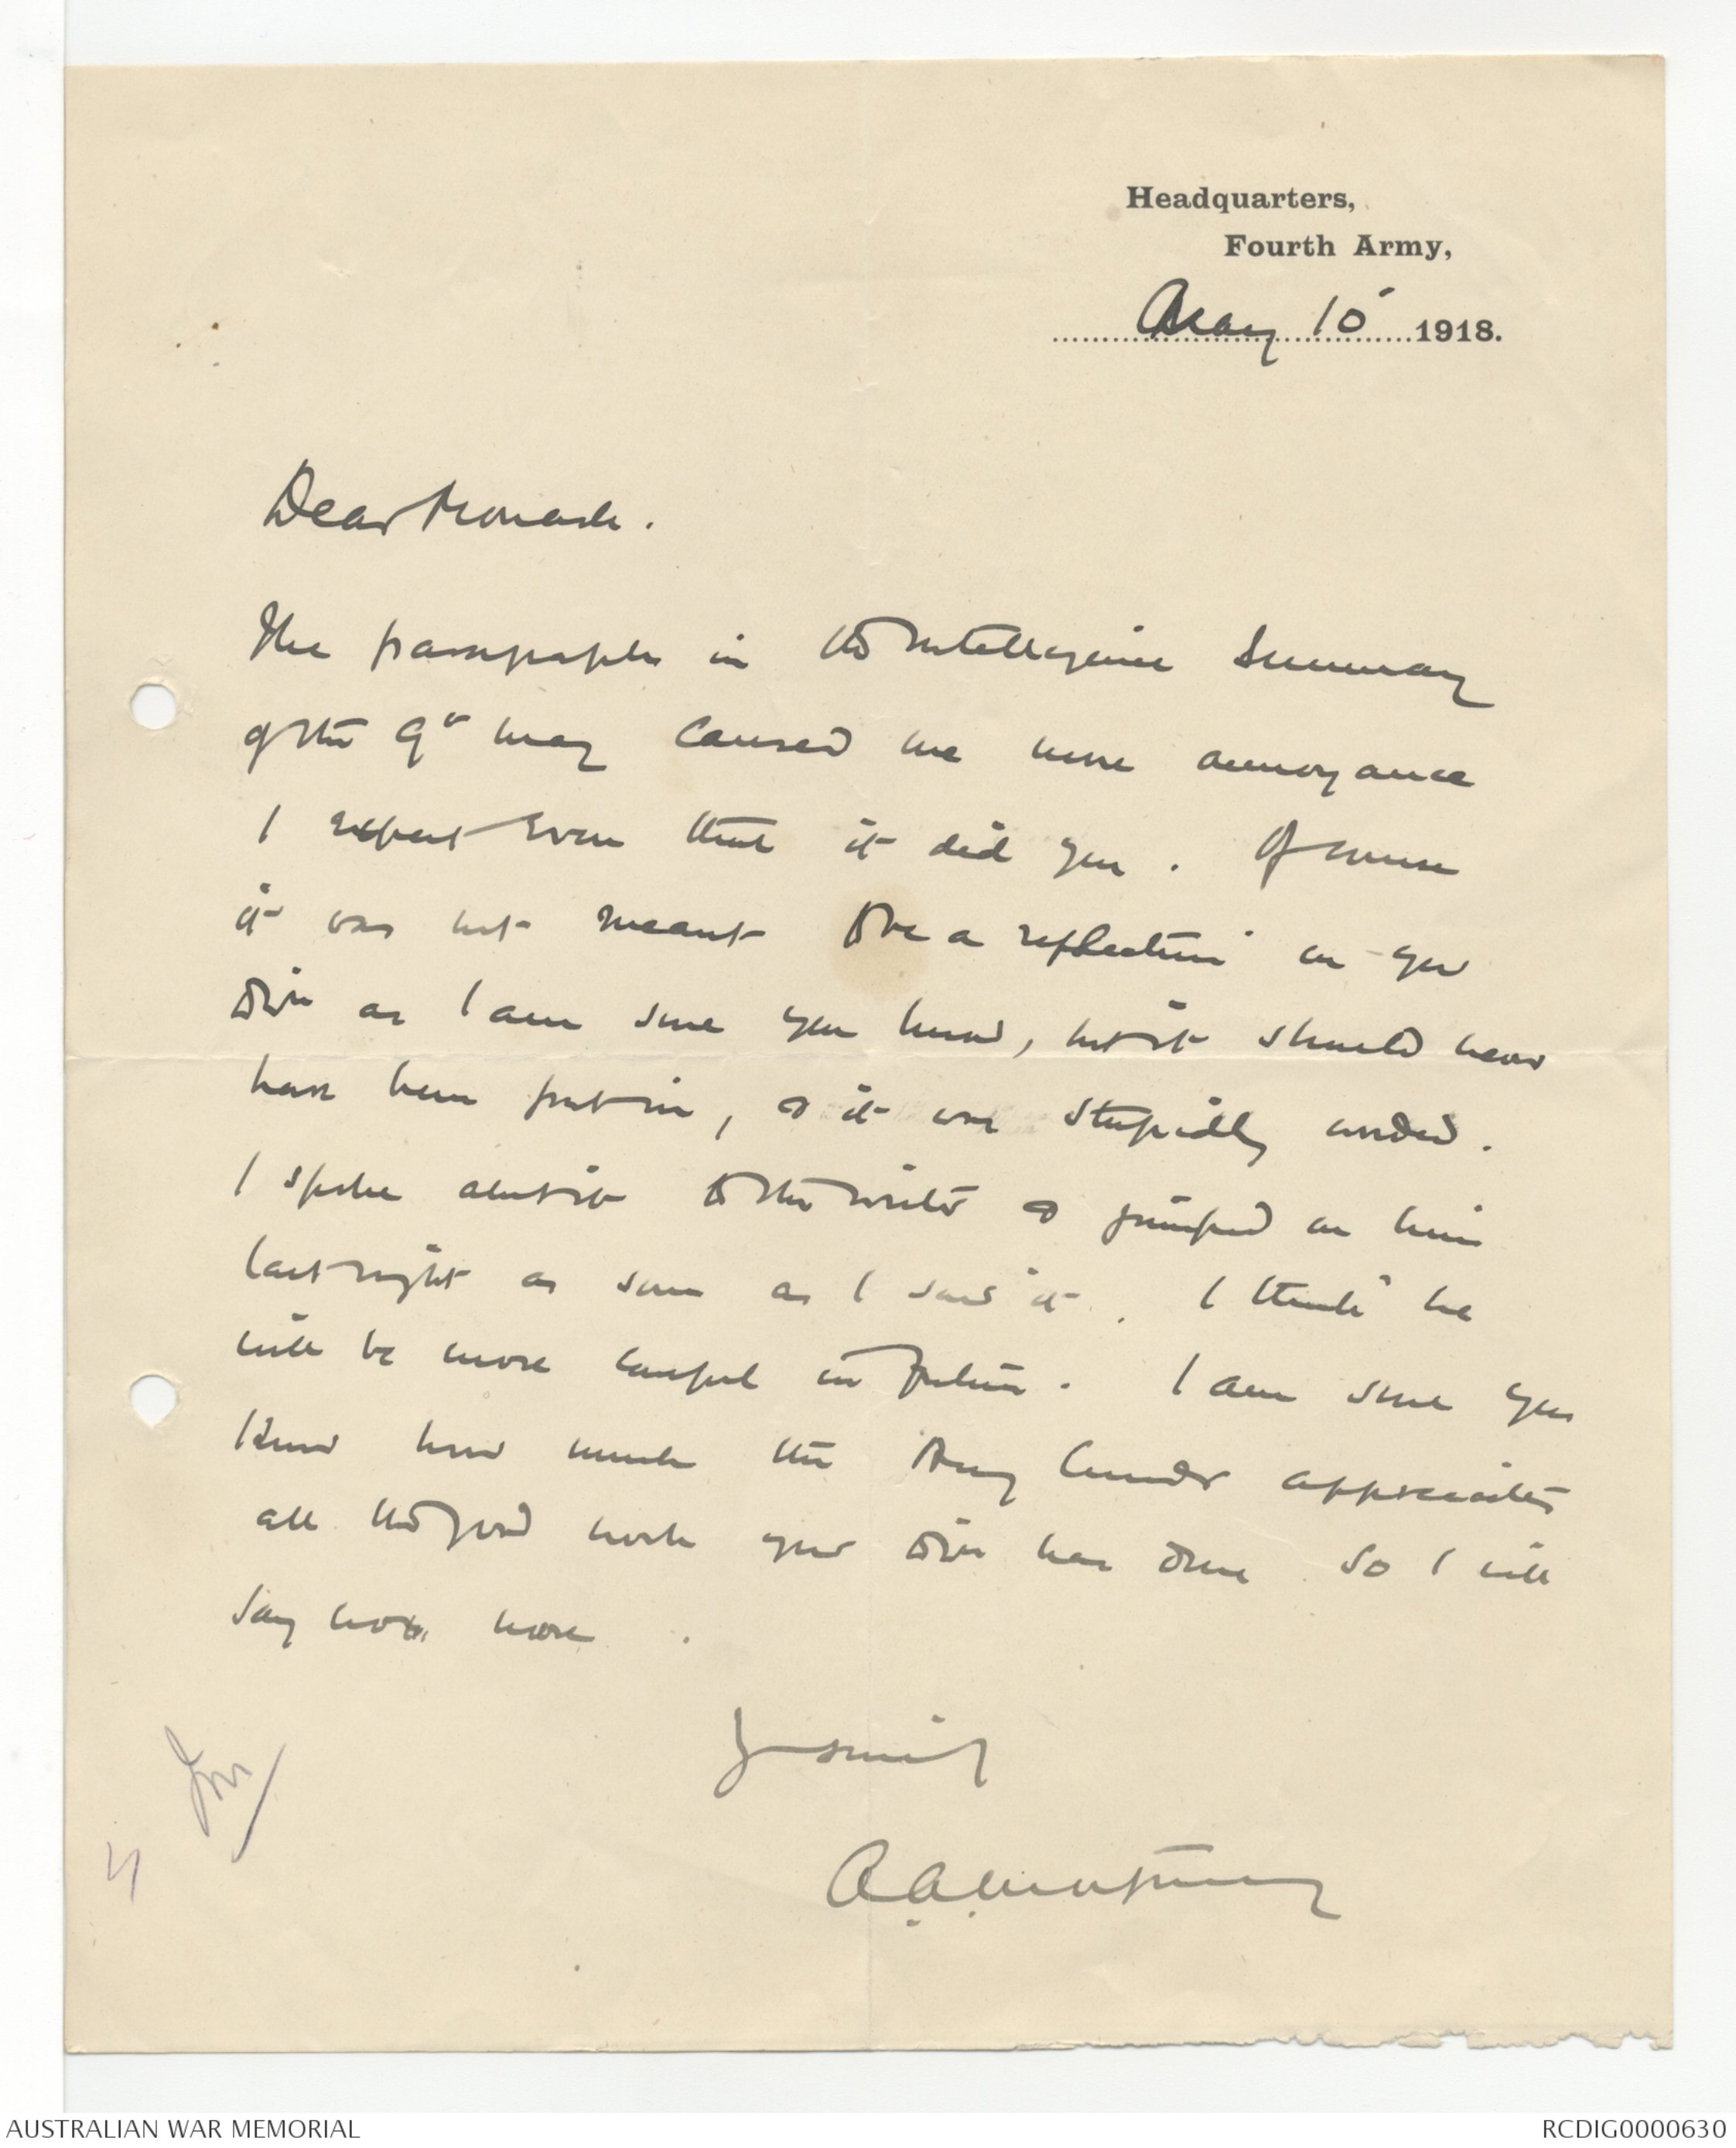 Headquarters,
Fourth Army,
May 10 1918.
Dear Monash.
The paragraph in the Intelligence Summary
of the 9th May caused me more annoyance
I expect even than it did you. Of course
it was not meant to be a reflection on your
Divn as I am sure you know, but it should never
have been put in, & it was stupidly worded.
I spoke about it to the writer & jumped on him
last night as soon as I saw it. I think he
will be more careful in future. I am sure you
know how much the Army Commdr appreciates
all the good work your Divn has done so I will
say no more.
Yrs sincerely
A.A. Montgomery
JM
AUSTRALIAN WAR MEMORIAL
RCDIG0000630